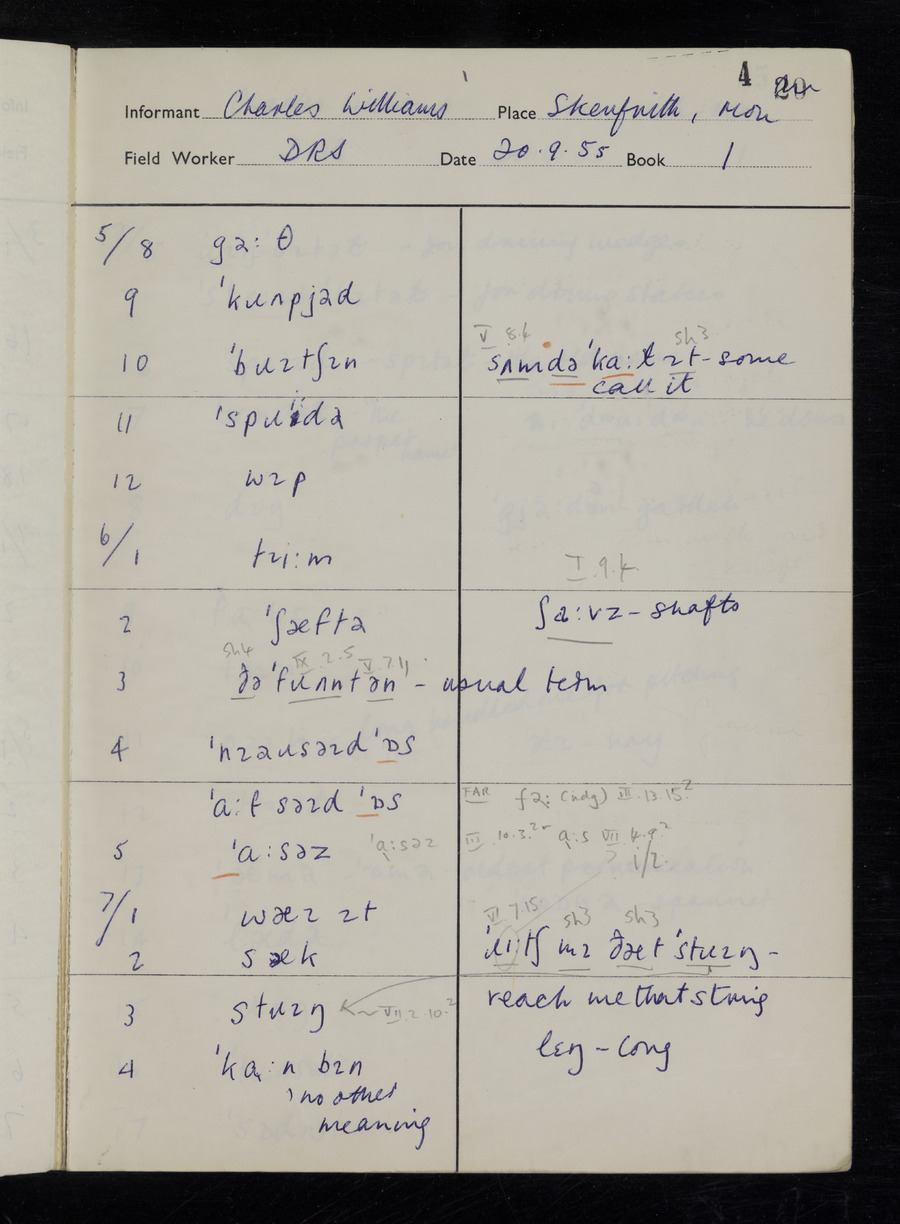 4 20
Informant Charles Williams Place Skenfrith, Mon
Field Worker DRS Date 20.9.55 Book 1
5/8 gə: θ
9 'kuʌpjəd
10 'buɪtʃɪn
V 8.4 sh3
sʌm də 'ka:ł ɪt - some
call it
11 'spuɪdə
12 wɪp
6/1 tɹi:m
I.9.4
2 'ʃæftə
ʃa:vz - shafts
sh4 IX.2.5 V.7.11
3 ðə 'fuʌntən - usual term
4 'nɪəusəɪd 'ɒs
'a:f səɪd 'ɒs
FAR fə: (adg) VII.13.15²
5 'a:səz 'a:səz
III 10.3.2 a:s VII 4.9²
i/2
7/1 wæɪ ɪt
VI 7.15 sh3 sh3
2 sæk
'ɹi:tʃ mɪ ðæt 'stɹɪŋ -
3 stɹɪŋ VII.2.10.²
reach me that string
lɛŋ - long
4 'ka:n bɪn
no other
meaning